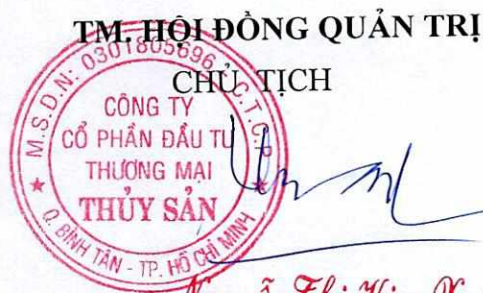 TM. HỘI ĐỒNG QUẢN TRỊ
CHỦ TỊCH
M.S.D.N: 0301805696 C.T.C.P
CÔNG TY
CỔ PHẦN ĐẦU TƯ
THƯƠNG MẠI
THỦY SẢN
Q. BÌNH TÂN - TP. HỒ CHÍ MINH